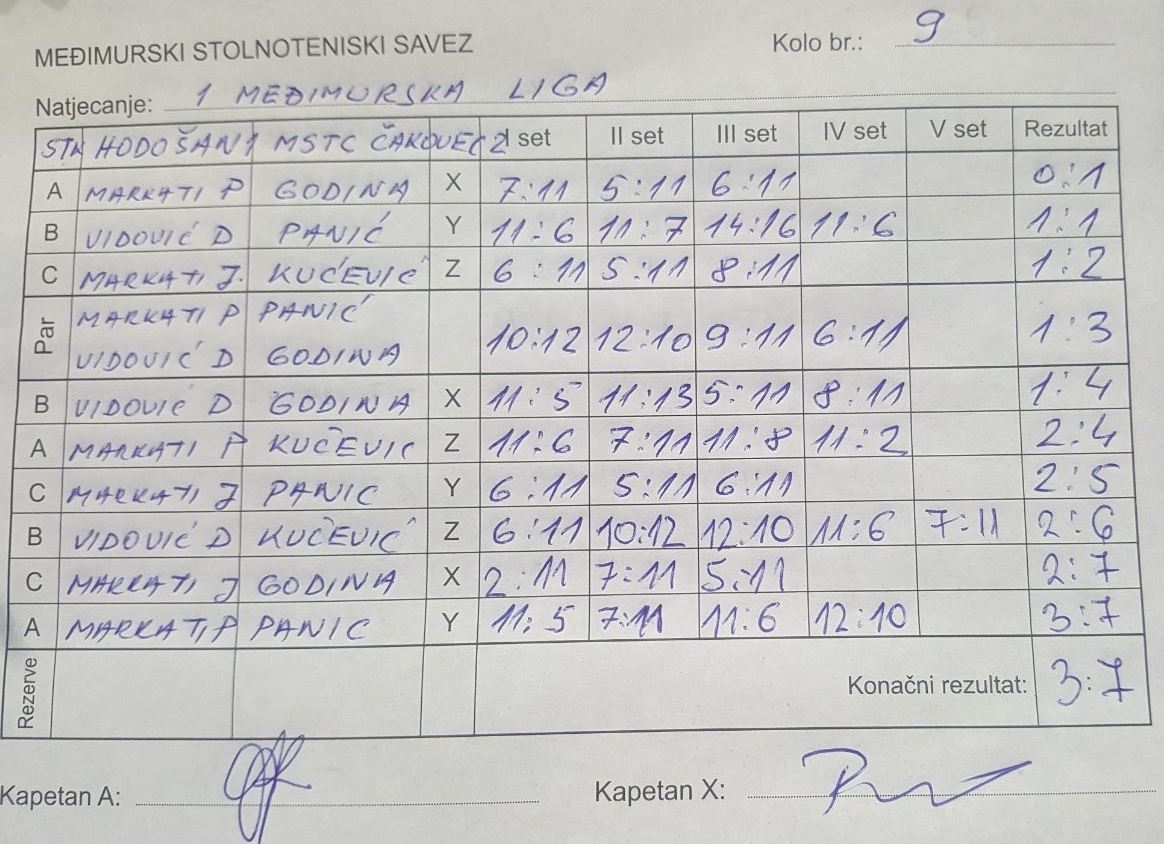 MEĐIMURSKI STOLNOTENISKI SAVEZ Kolo br.: 9
Natjecanje: 1 MEĐIMURSKA LIGA
STK HODOŠAN 1 MSTC ČAKOVEC 2 I set II set III set IV set V set Rezultat
A MARKATI P GODINA X 7:11 5:11 6:11 0:1
B VIDOVIĆ D PANIĆ Y 11:6 11:7 14:16 11:6 1:1
C MARKATI J. KUĆEVIĆ Z 6:11 5:11 8:11 1:2
Par MARKATI P PANIĆ
VIDOVIĆ D GODINA 10:12 12:10 9:11 6:11 1:3
B VIDOVIĆ D GODINA X 11:5 11:13 5:11 8:11 1:4
A MARKATI P KUČEVIC Z 11:6 7:11 11:8 11:2 2:4
C MARKATI J PANIC Y 6:11 5:11 6:11 2:5
B VIDOVIĆ D KUČEVIĆ Z 6:11 10:12 12:10 11:6 7:11 2:6
C MARKATI J GODINA X 2:11 7:11 5:11 2:7
A MARKATI P PANIC Y 11:5 7:11 11:6 12:10 3:7
Rezerve Konačni rezultat: 3:7
Kapetan A: Kapetan X: